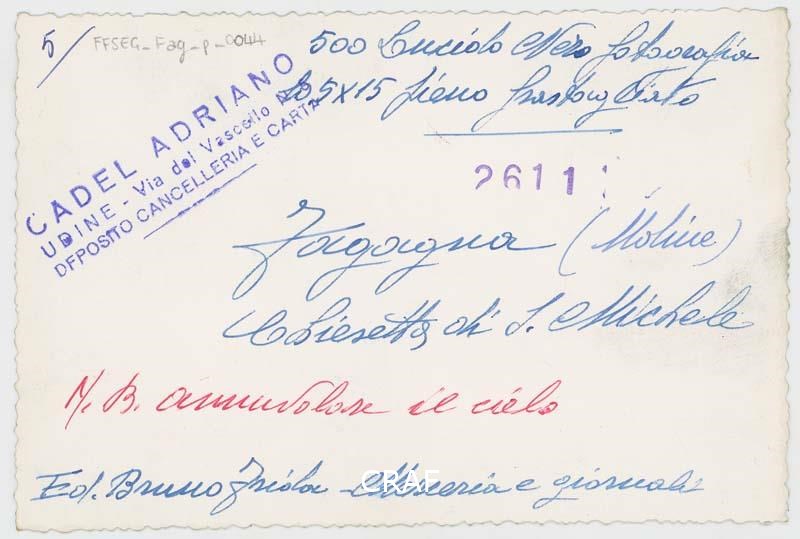 5/
FFSEG_Fag_p_0044
500 Lucido Nero fotografia
10,5x15 pieno
CADEL ADRIANO
UDINE - Via del Vascello
DEPOSITO CANCELLERIA E CARTA
2611
Fagagna (Moline)
Chiesetta di S. Michele
N.B. annuvolare il cielo
Ed. Bruno e giornali
CRAF